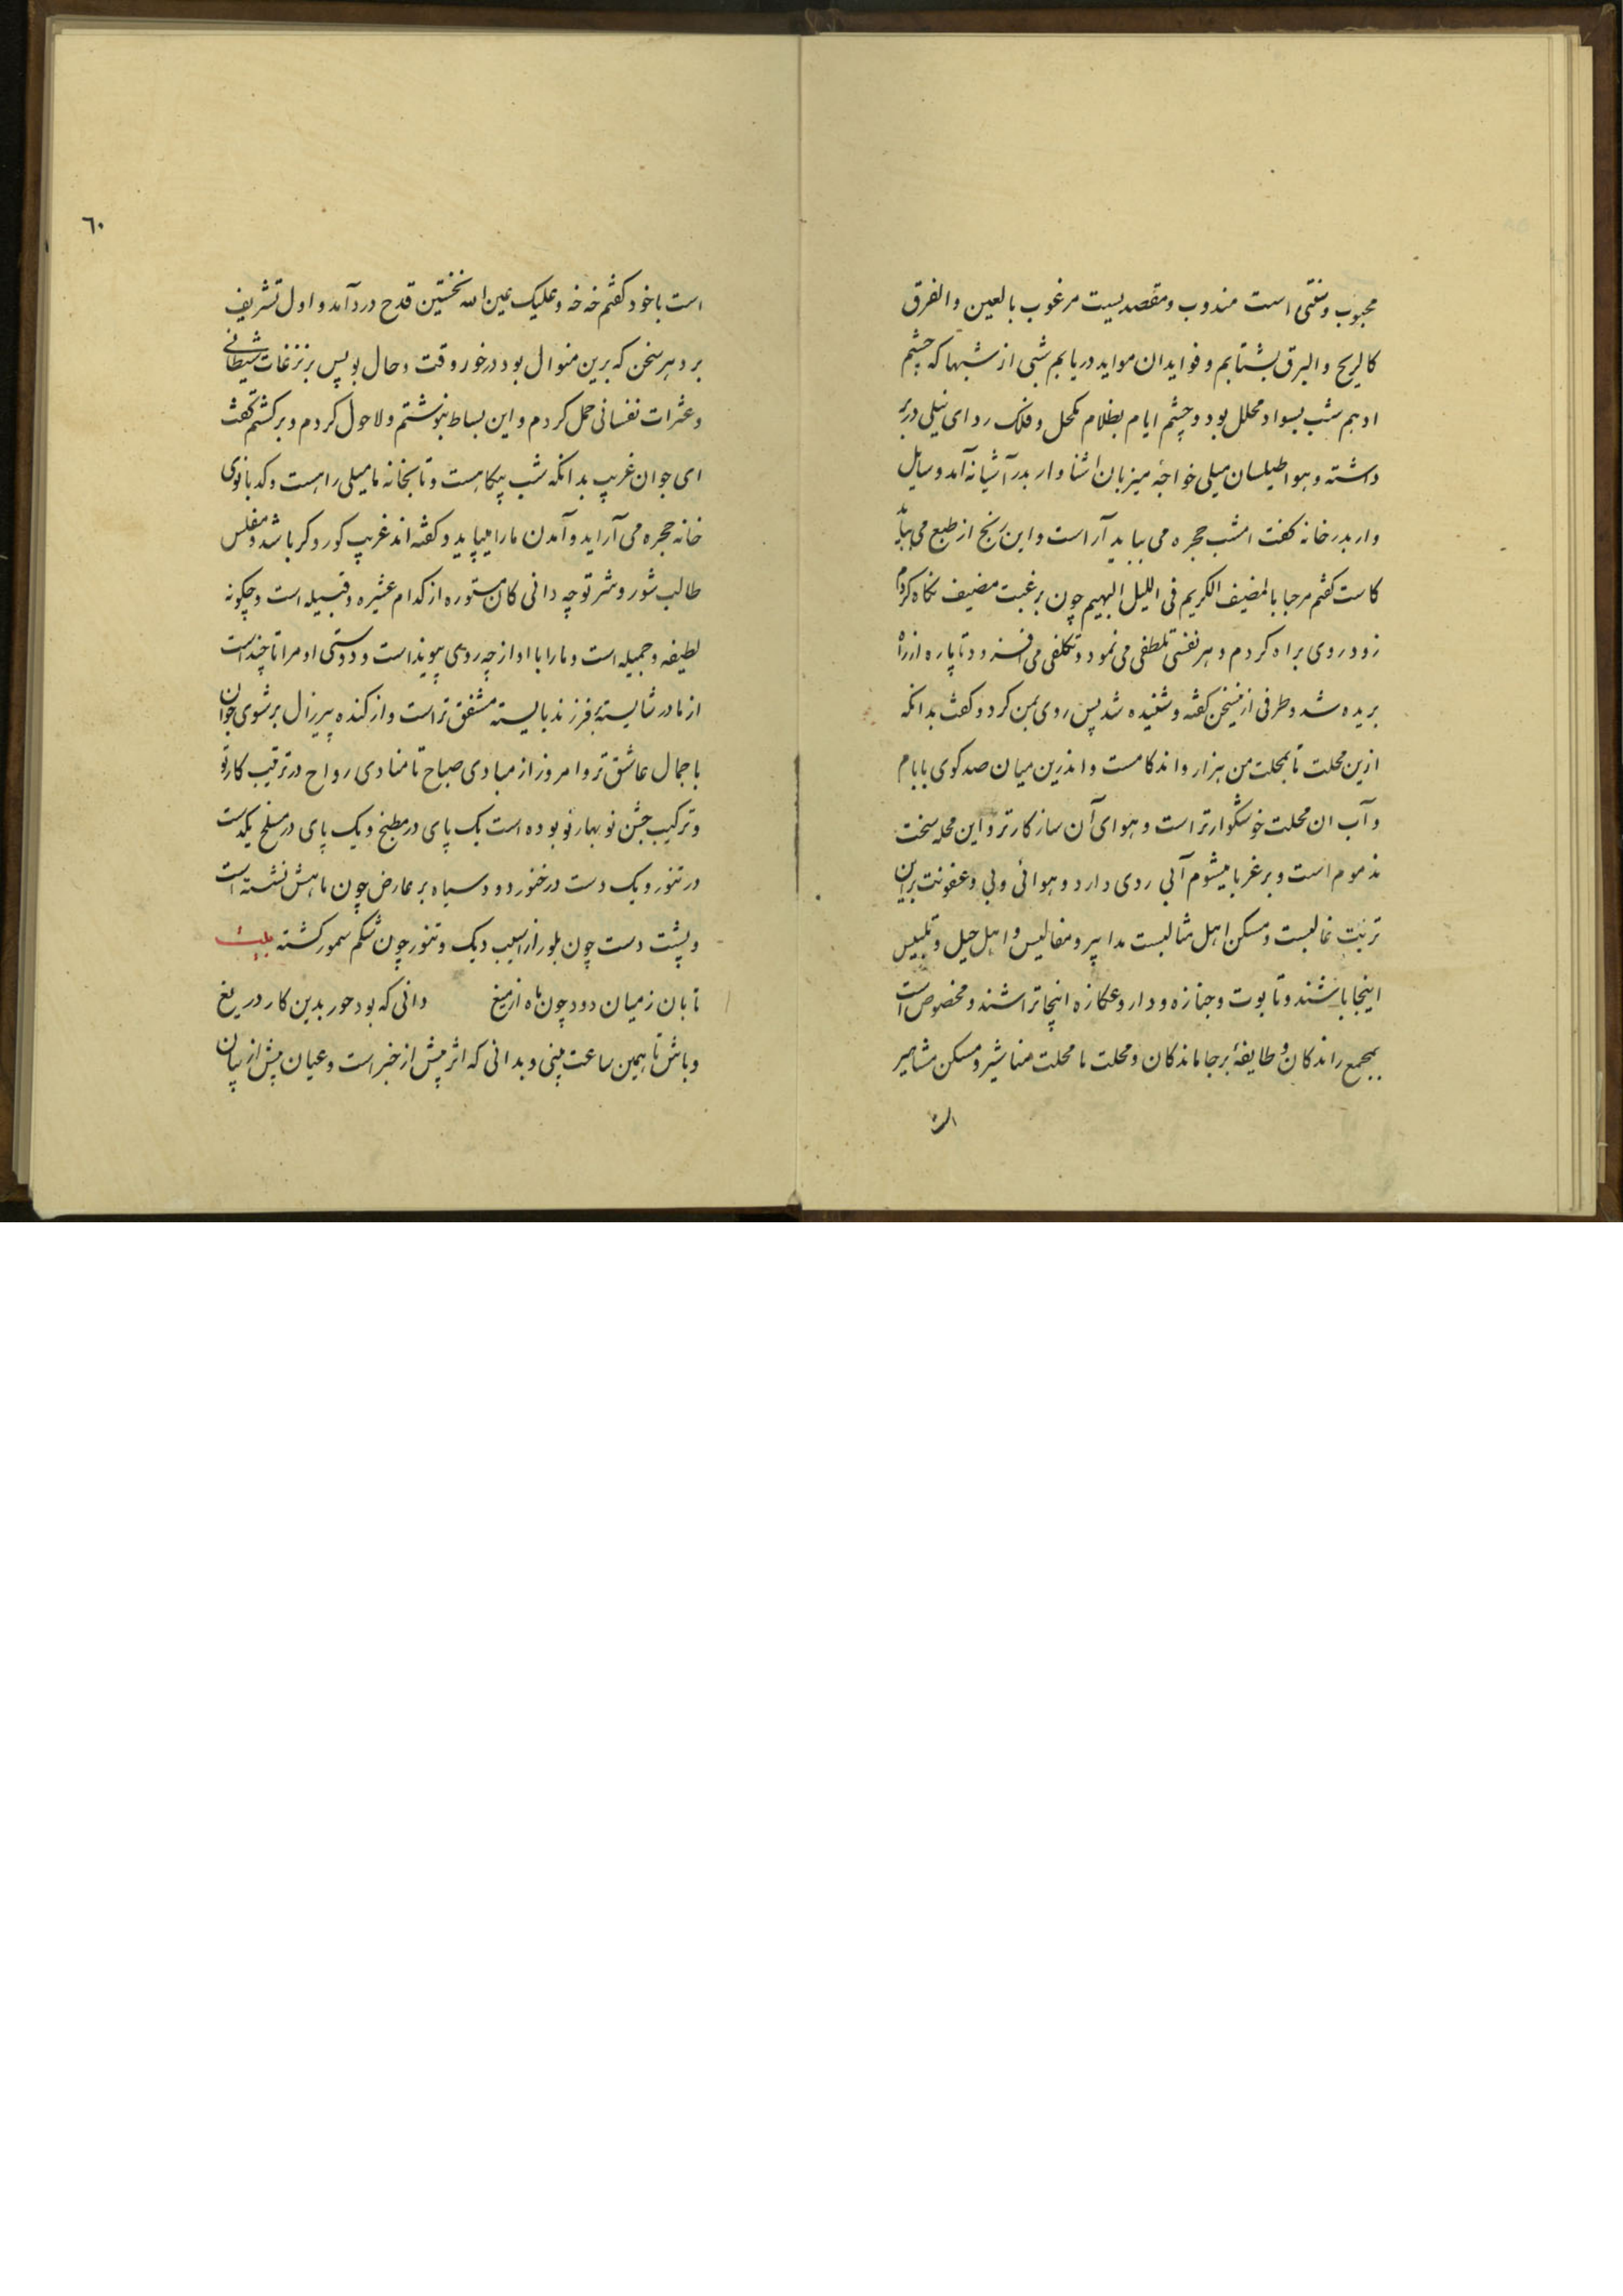 محبوب و سنتی است مندوب و مقصدیست مرغوب بالعین و الفرق
کالریح و البرق بشتابم و فوایدان مواید دریابم شبی از شبها که چشم
ادهم شب بسواد محلل بود و چشم ایام بظلام مکحل و فلک ردای نیلی دربر
داشته و هوا طیلسان میلی خواجه میزبان اشنا وار بدر آشیانه آمد و سایل
وار بدر خانه کفت امشب حجره می بباید آراست و این رنج از طبع می بباید
کاست کفتم مرحبا بالمضیف الکریم فی اللیل البهیم چون برغبت مضیف نکاه کردم
زود روی براه کردم و هر نفسی تلطفی می نمود و تکلفی می افزود تا پاره از راه
بریده شد و طرفی از سخن کفته و شنیده شد پس روی بمن کرد و کفت بدانکه
ازین محلت تا بمحلت من هزار و اند کامست و اندرین میان صد کوی با بام
و آب ان محلت خوشکوارتر است و هوای آن سازکارتر و این محله سخت
مذموم است و بر غربا میشوم آبی ردی دارد و هوائی وبی و عفونت براین
تربت غالبست و مسکن اهل مثالبست مدابیر و مفالیس و اهل حیل و تلبیس
اینجا باشند و تابوت و جنازه و دار و عکازه اینجا تراشند و مخصوص است
بمجمع راندکان و طایفهٔ برجا ماندکان و محلت ما محلت مناشیر و مسکن مشاهیر
است
٦٠
است با خود کفتم خه خه و علیک عین الله نخستین قدح درد آمد و اول تشریف
برد هر سخن که برین منوال بود درخور وقت و حال بو پس بر نزغات شیطانی
و عثرات نفسانی حمل کردم و این بساط بنوشتم و لاحول کردم و برکشتم کفت
ای جوان غریب بدانکه شب بیکاهست و تا بخانه ما میلی راهست و کدبانوی
خانه حجره می آراید و آمدن ما را میپاید و کفته اند غریب کور و کر باشد و مفلس
طالب شور و شر تو چه دانی کان مستوره از کدام عشیره و قبیله است و چکونه
لطیفه و جمیله است و ما را با او از چه روی پیوند است و دوستی او مرا تا چند است
از مادر شایسته بر فرزند بایسته مشفق تر است و از کنده پیر زال بر شوی جوان
با جمال عاشق تر و امروز از مبادی صباح تا منادی رواح در ترتیب کار تو
و ترکیب جشن نوبهار تو بوده است یک پای در مطبخ و یک پای در مسلخ یکدست
در تنور و یک دست در خنور دود سیاه بر عارض چون ماهش نشسته است
و پشت دست چون بلور از اسیب دیک و تنور چون شکم سمور کشته بیت
تابان ز میان دود چون ماه از میغ دانی که بود حور بدین کار دریغ
و باش تا همین ساعت بینی و بدانی که اثر پیش از خبر است و عیان پیش از بیان